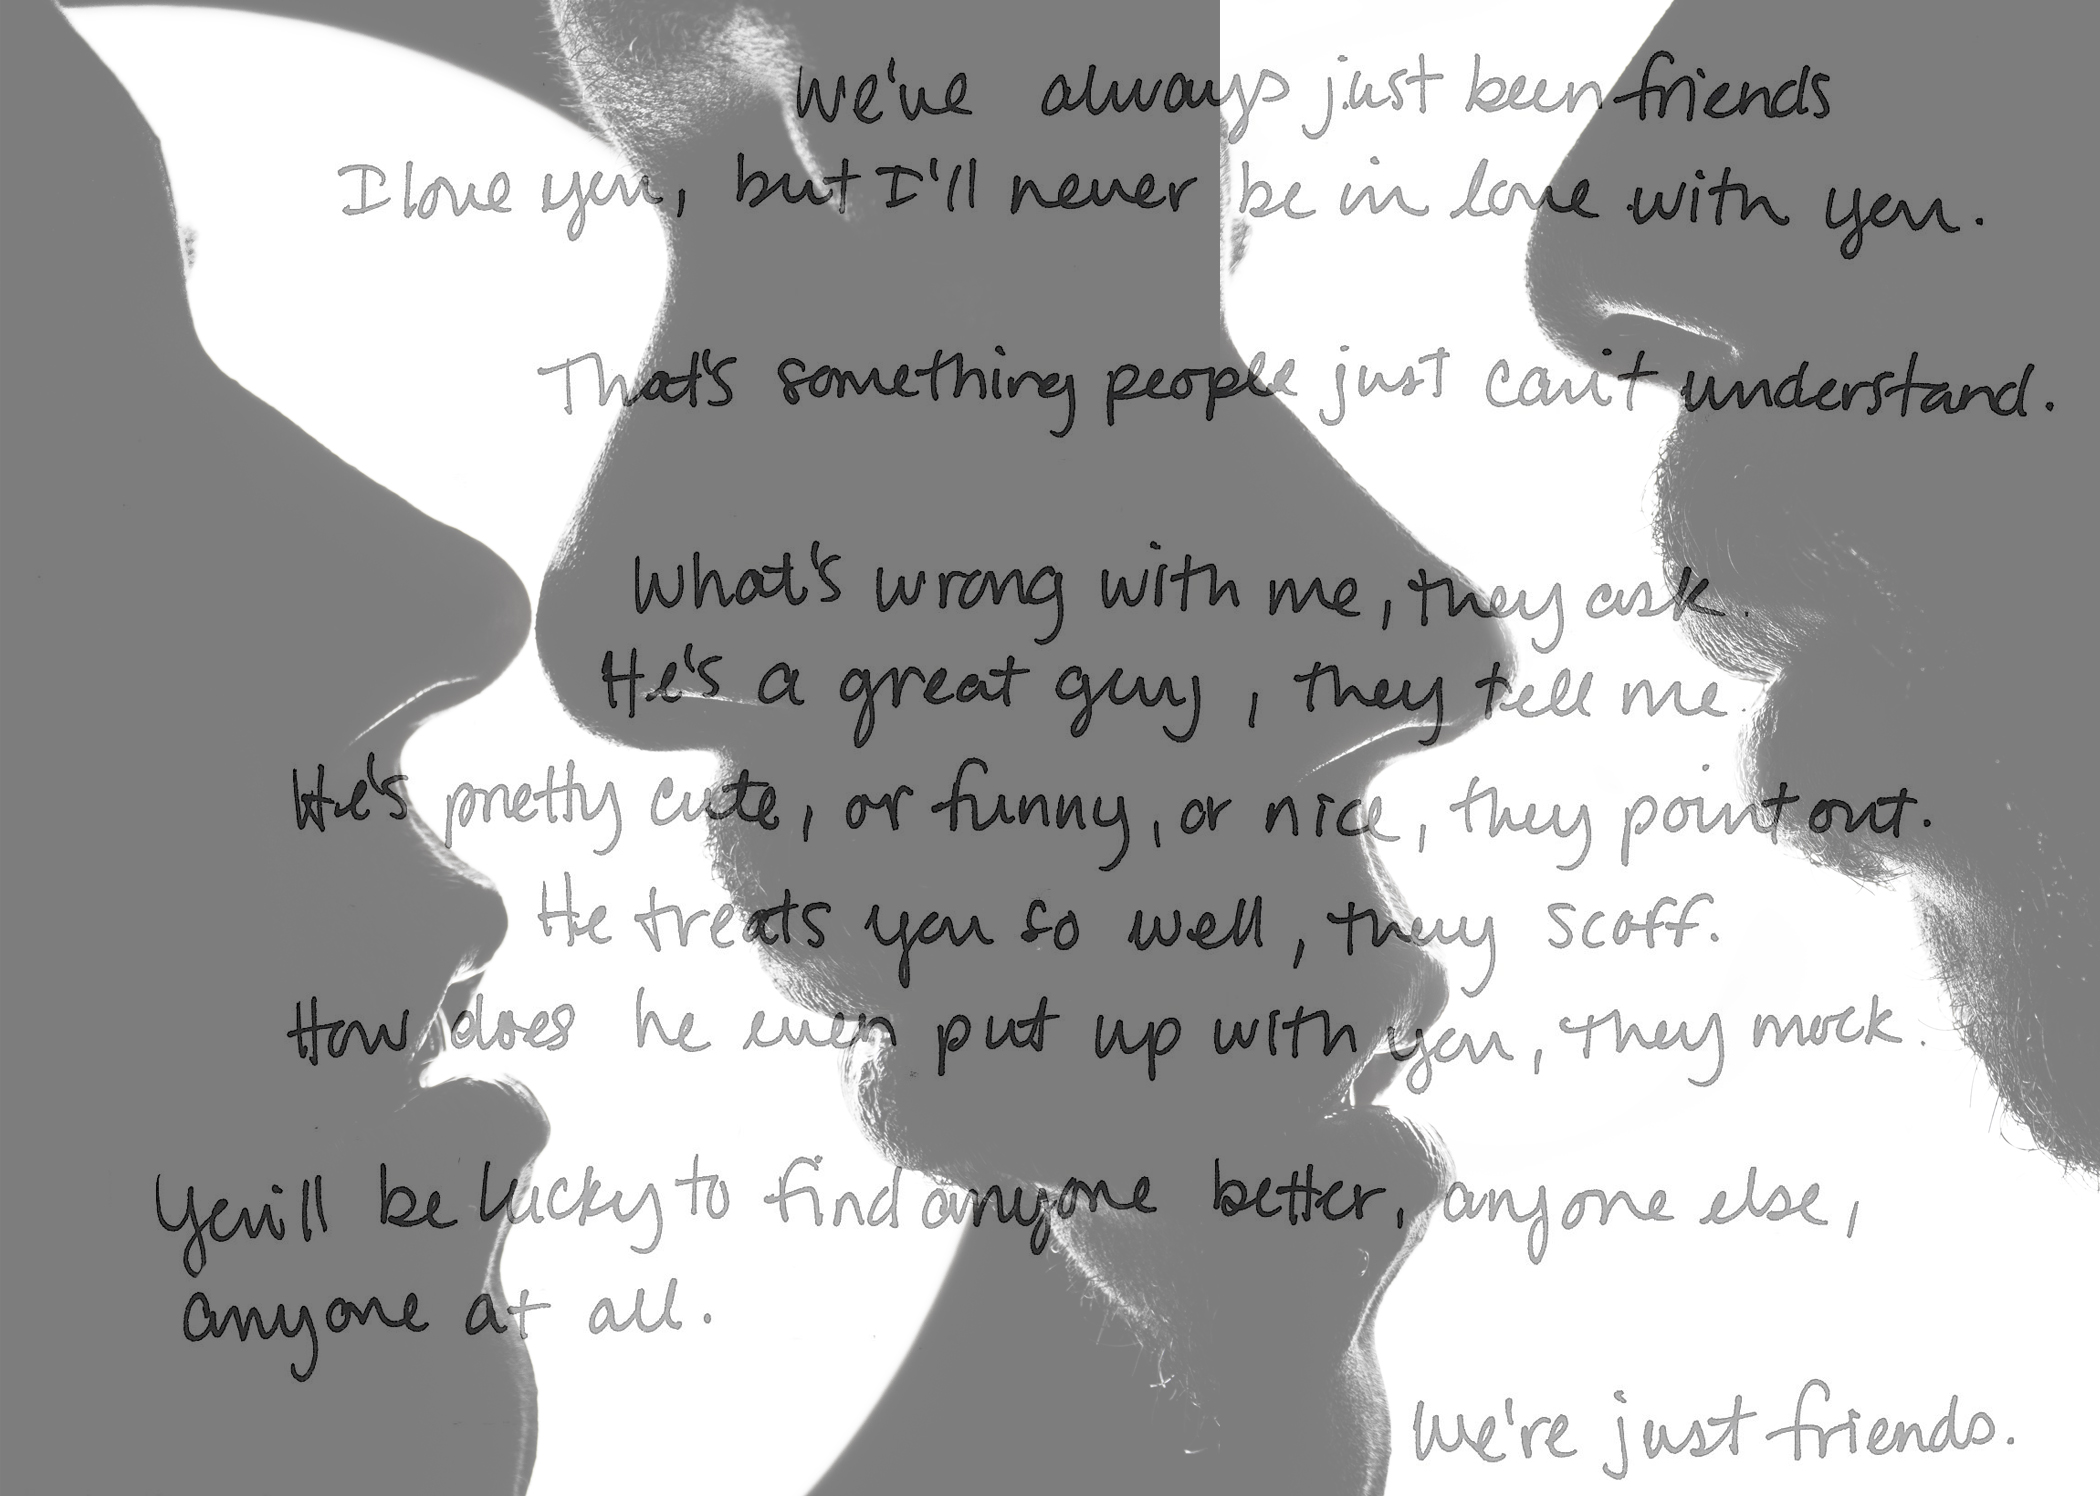 We've always just been friends
I love you, but I'll never be in love with you.
That's something people just can't understand.
What's wrong with me, they ask.
He's a great guy, they tell me.
He's pretty cute, or funny, or nice, they point out.
He treats you so well, they scoff.
How does he even put up with you, they mock.
You'll be lucky to find anyone better, anyone else,
anyone at all.
We're just friends.